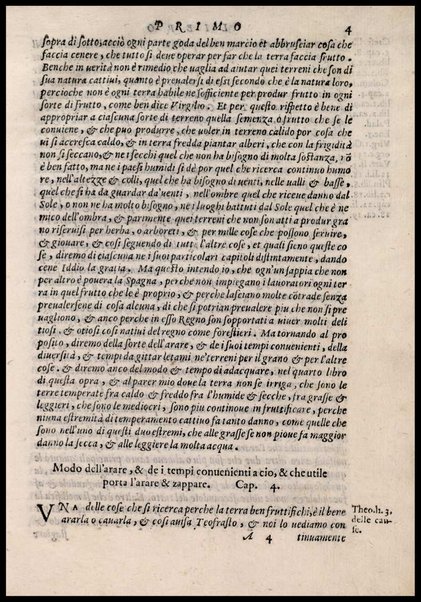 PRIMO 4
sopra di sotto, acciò ogni parte goda del ben marcio et abbrusciar cosa che
faccia cenere, che tutto si deue operar per far che la terra faccia frutto.
Benche in verità non è rimedio che uaglia ad aiutar quei terreni che son di
sua natura cattiui, quanto è preualersi di essi secondo che è la natura loro,
percioche non è ogni terra habile ne sofficiente per produr frutto in ogni
sorte di frutto, come ben dice Virgilio. Et per questo rispetto è bene di
appropriar a ciascuna sorte di terreno quella semenza o frutto che se le
conuiene, & che può produrre, che uoler in terreno calido por cosa che
ui si accresca caldo, & in terra fredda piantar alberi, che con la frigidità
non si seccano, & ne i secchi quel che non ha bisogno di molta sostanza, nõ
è ben fatto, ma ne i paesi humidi se dè por quel che ricerca continuo humo
re, nell'altezze & colli, quel che hà bisogno di uenti, nelle ualli & basse,
quel che si ha da guardar da uenti, nell'ombre quel che riceue danno dal
Sole, o non ne ha molto bisogno, ne i luoghi battuti dal Sole quel che è ne
mico dell'ombra, & parimente quei terreni che non son atti a produr gra
no riseruisi per herba, o arboreti, & per mille cose che possono seruire,
& giouare, & così seguendo di tutte l'altre cose, et quali sieno queste co
se, diremo di ciascuna ne i suoi particolari capitoli distintamente, dando
cene Iddio la gratia. Ma questo intendo io, che ogn'un sappia che non
per altro è pouera la Spagna, perche non impiegano i lauoratori ogni ter
ra in quel frutto che le è proprio, & perche lasciano molte cõtrade senza
preualersene di cosa alcuna, di che si potrian preualere piu che non si pre
uagliono, & anco perche in esso Regno son sopportati a uiuer molti deli
tiosi, & otiosi così natiui del regno come forestieri. Ma tornando al pro
posito, diremo della sorte dell'arare, & de i suoi tempi conuenienti, della
diuersità, & tempi da gittar letami ne' terreni per il grano & per l'altre
cose, & diremo anco del modo & tempo di adacquare, nel quarto libro
di questa opra, & al parer mio doue la terra non se irriga, che sono le
terre temperate fra caldo & freddo fra l'humide & secche, fra grasse &
leggieri, che sono le mediocri, sono piu continoue in fruttificare, perche
niuna estremità di temperamento cattiuo fa tanto danno, come quelle che
sono nell'uno di questi duo estremi, che alle grasse se non pioue fa maggior
danno la secca, & alle leggiere la molta acqua.
Modo dell'arare, & de i tempi conuenienti a cio, & che utile
porta l'arare & zappare. Cap. 4.
VNA delle cose che si ricerca perche la terra ben fruttifichi, è il bene
ararla o cauarla, & così auisa Teofrasto, & noi lo uediamo con
Theo.h.3.
delle cau-
se.
A 4 tinuamente